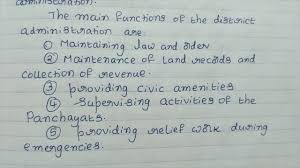 administration.
The main functions of the district
administration are:
① Maintaining law and order
② Maintenance of land records and
collection of revenue.
③ providing civic amenities
④ Supervising activities of the
Panchayats.
⑤ providing relief work during
emergencies.